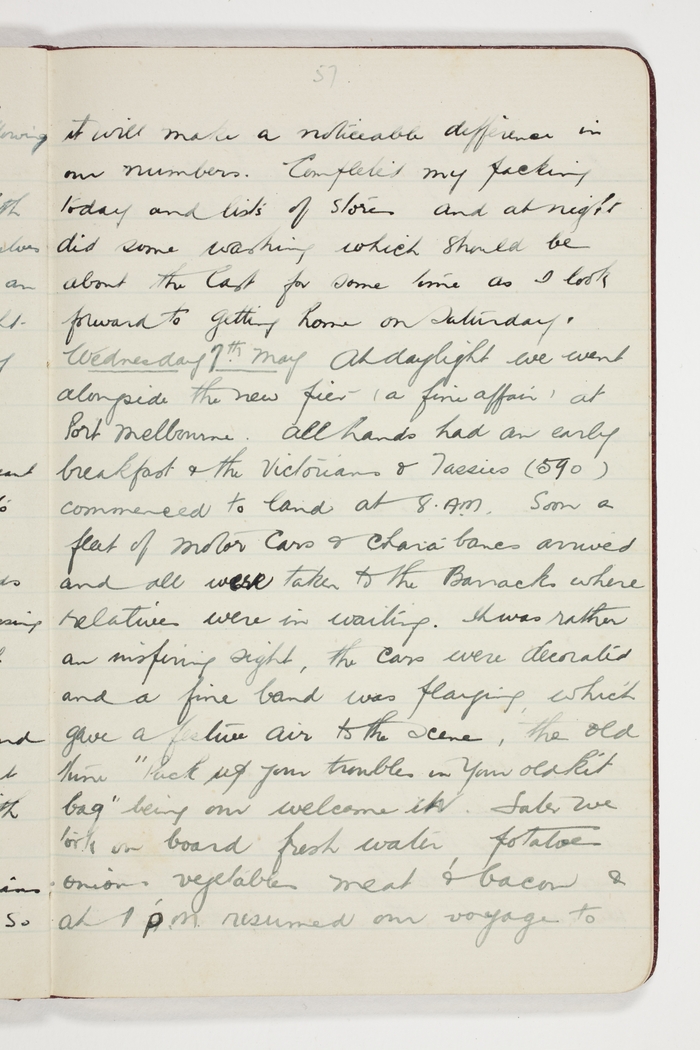 57.
it will make a noticeable difference in
our numbers. Completed my packing
today and lists of stores and at night
did some washing which should be
about the last for some time as I look
forward to getting home on Saturday.
Wednesday 7th May At daylight we went
alongside the new pier (a fine affair) at
Port Melbourne. All hands had an early
breakfast & the Victorians & Tassies (590)
commenced to land at 8. AM. Soon a
fleet of Motor Cars & chara bancs arrived
and all were taken to the Barracks where
relatives were in waiting. It was rather
an inspiring sight, the cars were decorated
and a fine band was playing, which
gave a festive air to the scene, the old
time "Pack up your troubles in Your old kit
bag" being our welcome in. Later we
took on board fresh water potatoes
onions vegetables meat & bacon &
at 1 p.m. resumed our voyage to